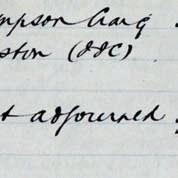 mpson Craig
ston (IDC)
t adjourned